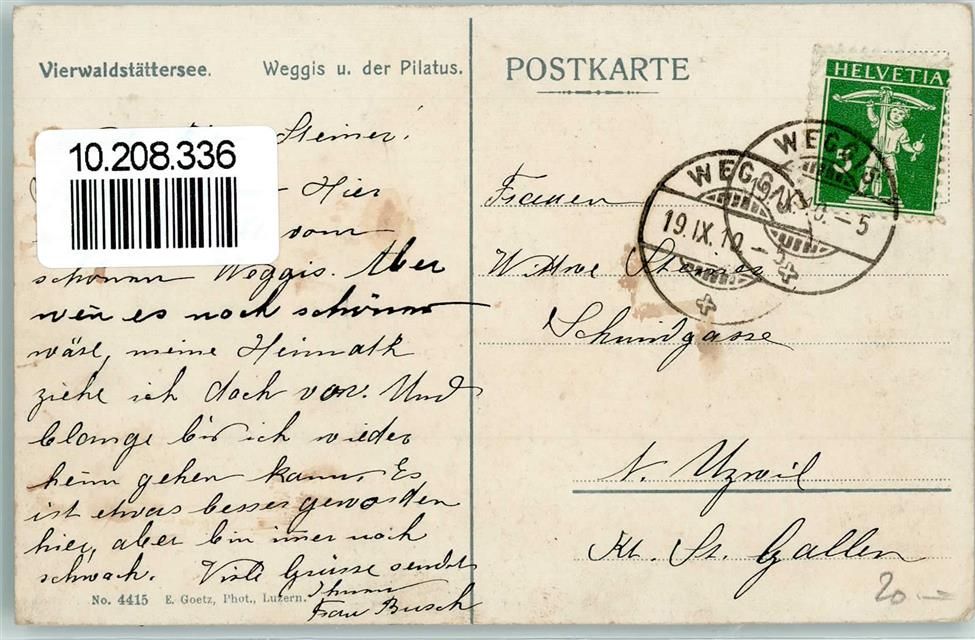 Vierwaldstättersee. Weggis u. der Pilatus.
POSTKARTE
HELVETIA
5
WEGGIS
19.IX.10.-5
WEGGIS
19.IX.10.-5
10.208.336
Steiner!
Hier
vom
schönen Weggis. Aber
wen es noch schöner
wäre, meine Heimath
ziehe ich doch vor. Und
blange bis ich wieder
heim gehen kann. Es
ist etwas besser geworden
hier, aber bin imer noch
schwach. Viele Grüsse sendet
Ihnen
Frau Busch
No. 4415 E. Goetz, Phot., Luzern.
Frauen
Wittwe Steiner
Schmidgasse
N. Uzwil
Kt. St. Gallen
20.-